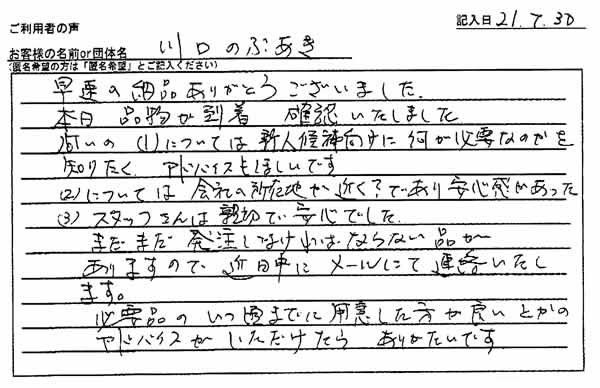 ご利用者の声
記入日 21.7.30
お客様の名前or団体名 川口のぶあき
(匿名希望の方は「匿名希望」とご記入ください)
早速の納品ありがとうございました.
本日 品物が到着 確認いたしました
問いの (1)については 新人候補向けに 何が必要なのかを
知りたく、アドバイスもほしいです
(2)については 会社の所在地が近く?であり安心感があった
(3) スタッフさんは 親切で 安心でした.
まだまだ 発注しなければならない品が
ありますので 近日中に メールにて 連絡いたし
ます。
必要品の いつ頃までに用意した方が良いとかの
アドバイスが いただけたら ありがたいです